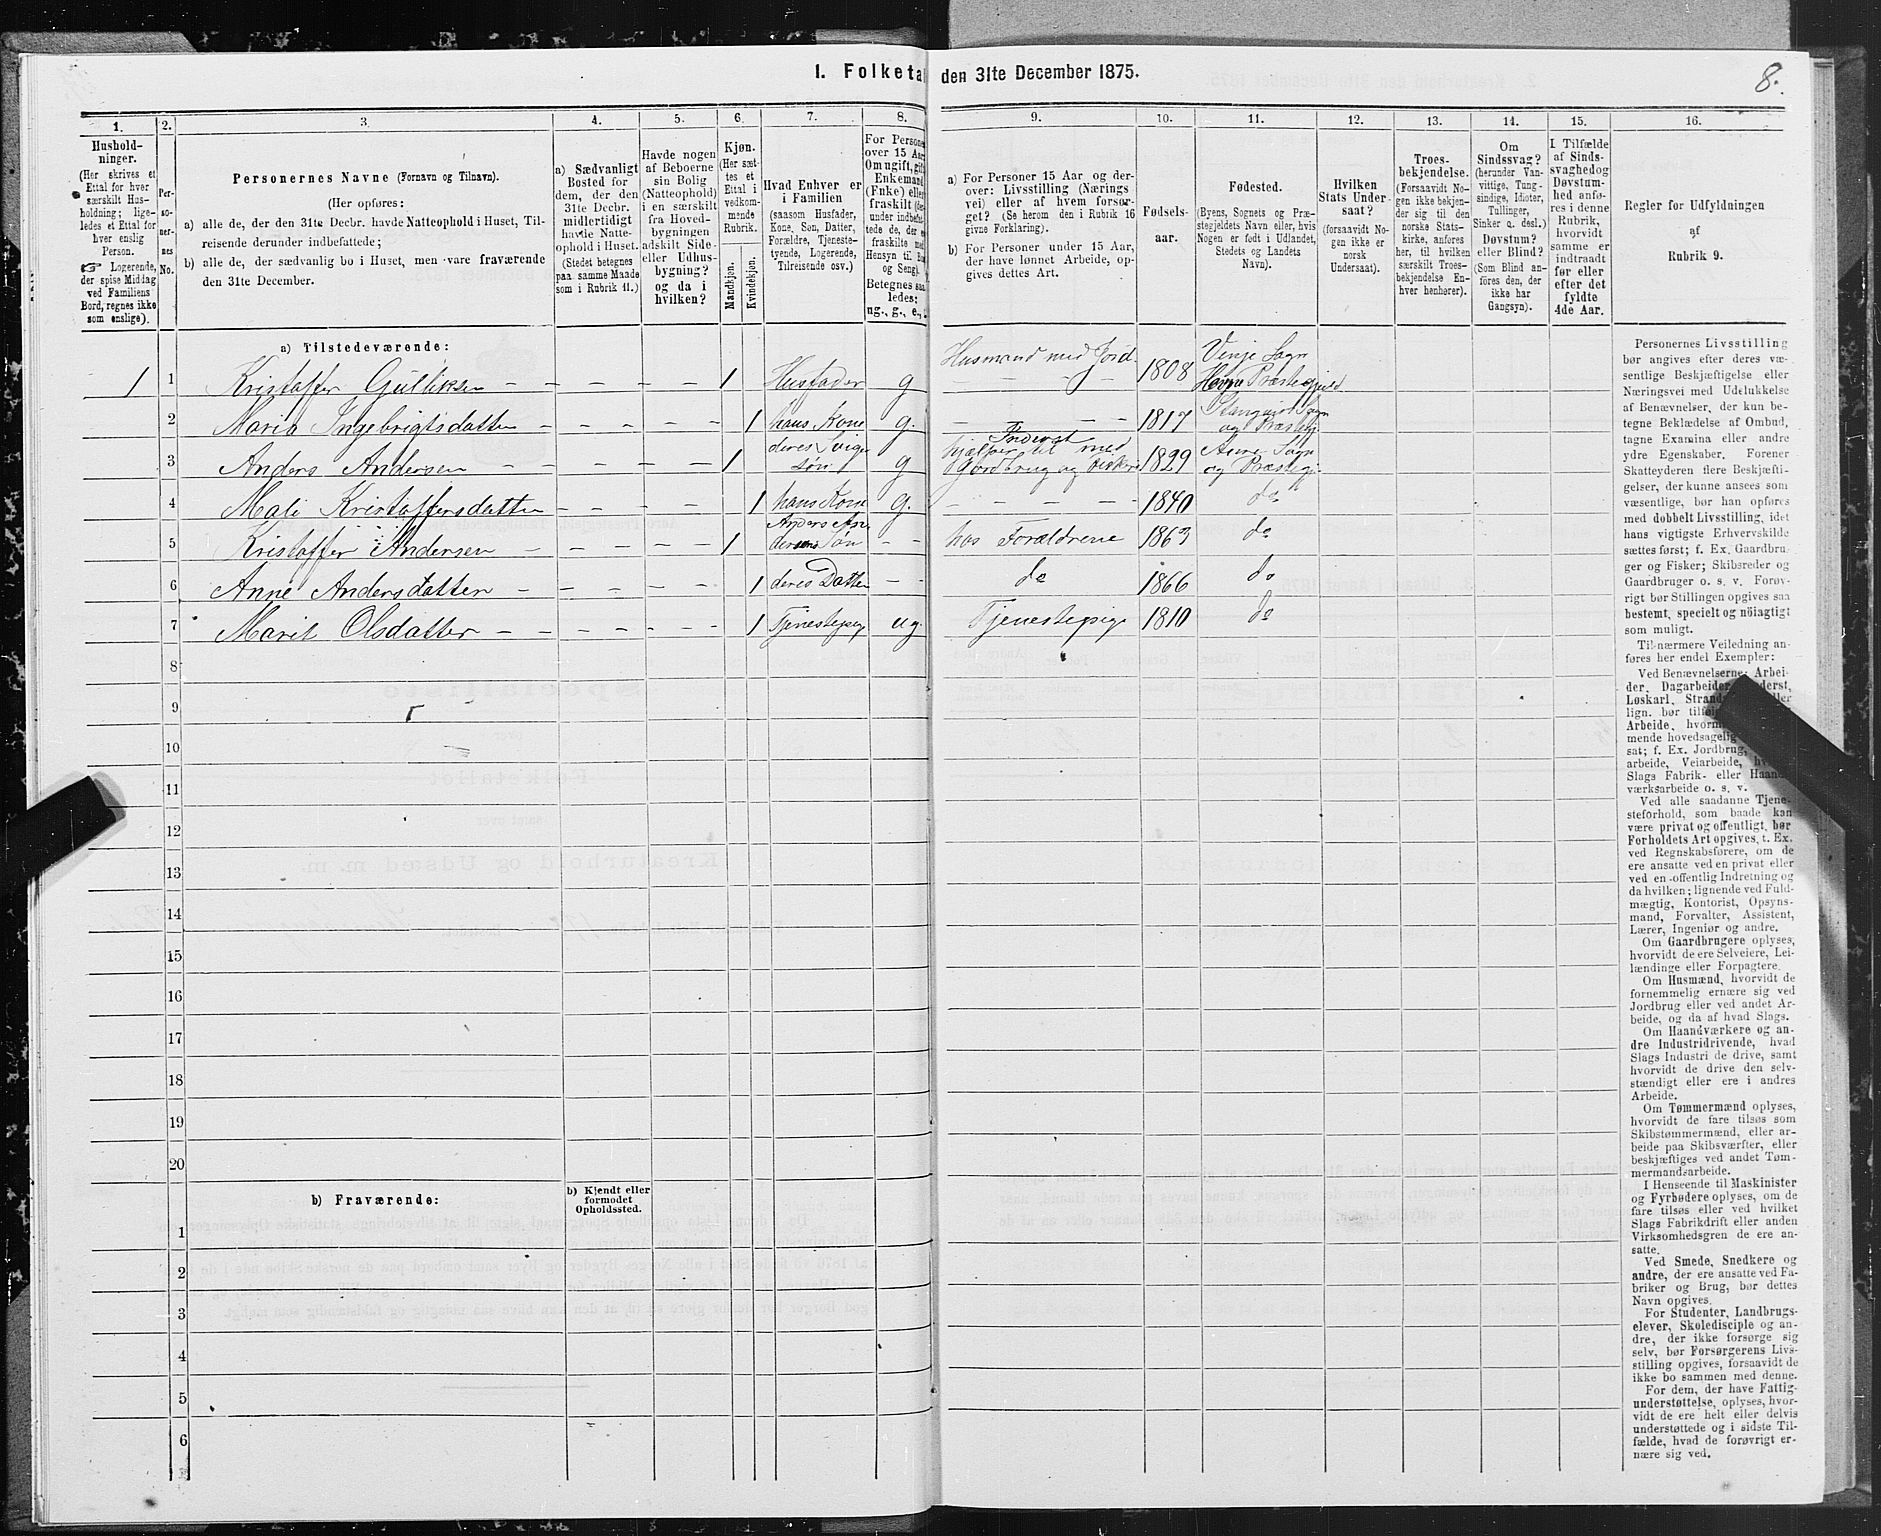 I. Folketal den 31te December 1875.
8.
1.
2.
3.
4.
5.
6.
7.
8.
9.
10.
11.
12.
13.
14.
15.
16.
Hushold-
ninger.
(Her skrives et
Ettal for hver
særskilt Hus-
holdning; lige-
ledes et Ettal for
hver enslig
Person.
☞ Logerende,
der spise Middag
ved Familiens
Bord, regnes ikke
som enslige).
Per-
so-
ner-
nes
No.
Personernes Navne (Fornavn og Tilnavn).
(Her opføres:
a) alle de, der den 31te Decbr. havde Natteophold i Huset, Til-
reisende derunder indbefattede;
b) alle de, der sædvanlig bo i Huset, men vare fraværende
den 31te December.
a) Sædvanligt
Bosted for
dem, der den
31te Decbr.
midlertidigt
havde Natte-
ophold i Huset.
(Stedet betegnes
paa samme Maade
som i Rubrik 11.)
Havde nogen
af Beboerne
sin Bolig
(Natteophold)
i en særskilt
fra Hoved-
bygningen
adskilt Side-
eller Udhus-
bygning?
og da i
hvilken?
Kjøn.
(Her sæt-
tes et
Ettal i
vedkom-
mende
Rubrik.
Mandkjøn.
Kvindekjøn.
Hvad Enhver er
i Familien
(saasom Husfader,
Kone, Søn, Datter,
Forældre, Tjeneste-
tyende, Logerende,
Tilreisende osv.)
For Persone
over 15 Aar
Omugift, gift
Enkemand
(Fnke) eller
fraskilt (der-
under indbefat-
tede de, der er
fraskilte med
Hensyn til Bo
og Seng).
Betegnes saa
ledes:
ug., g., e.,
a) For Personer 15 Aar og der-
over: Livsstilling (Nærings
vei) eller af hvem forsør-
get? (Se herom den i Rubrik 16
givne Forklaring).
b) For Personer under 15 Aar,
der have lønnet Arbeide, op-
gives dettes Art.
Fødsels-
aar.
Fødested.
(Byens, Sognets og Præ-
stegjeldets Navn eller, hvis
Nogen er født i Udlandet,
Stedets og Landets
Navn).
Hvilken
Stats Under-
saat?
(forsaavidt No-
gen ikke er
norsk
Undersaat).
Troes-
bekjendelse.
(Forsaavidt No-
gen ikke bekjen-
der sig til den
norske Stats-
kirke, anføres
her, til hvilken
særskilt Troes-
bekjendelse En-
hver henhører).
Om
Sindssvag?
(herunder Van-
vittige, Tung-
sindige, Idioter,
Tullinger,
Sinker o. desl.)
Døvstum?
eller Blind?
(Som Blind an-
føres den, der
ikke har
Gangsyn).
I Tilfælde
af Sinds-
svaghed og
Døvstum-
hed anfø-
res i denne
Rubrik,
hvorvidt
samme er
indtraadt
før eller
efter det
fyldte
4de Aar.
Regler for Udfyldningen
af
Rubrik 9.
a) Tilstedeværende:
1 1 Kristoffer Gulliksen 1 Husfader g Husmand med Jord 1808 Vinje Sogn
Hevne Præstegjeld
2 Maria Ingebrigtsdatter 1 hans Kone g. 1817 Stangvik Sogn
og Præstegj.
3 Anders Andersen 1 deres Svigersøn g Inderst hjælper til med
Gordbrug og Fiskeri 1829 Aure Sogn
og Præstegj.
4 Mali Kristoffersdatter 1 hans Kone g. 1840 do
5 Kristoffer Andersen 1 Anders Andersens Søn hos Forældrene 1863 do
6 Anne Andersdatter 1 deres Datter do 1866 do
7 Marit Olsdatter 1 Tjenestepige ug. Tjenestepige 1810 do
8
9
10
11
12
13
14
15
16
17
18
19
20
b) Fraværende:
b) Kjendt eller
formodet
Opholdssted.
1
2
3
4
5
6
Personernes Livsstilling
bør angives efter deres væ-
sentlige Beskjæftigelse eller
Næringsvei med Udelukkelse
af Benævnelser, der kun be-
tegne Beklædelse af Ombud,
tagne Examina eller andre
ydre Egenskaber. Forener
Skatteyderen flere Beskjæfti-
gelser, der kunne ansees som
væsentlige, bør han opføres
med dobbelt Livsstilling, idet
hans vigtigste Erhvervskilde
sættes først; f. Ex. Gaardbru-
ger og Fisker; Skibsreder og
Gaardbruger o. s. v. Forøv-
rigt bør Stillingen opgives saa
bestemt, specielt og nøiagtigt
som muligt.
Til nærmere Veiledning an-
føres her endel Exempler:
Ved Benævnelserne: Arbei-
der, Dagarbeider, Inderst,
Løskarl, Strand eller
lign. bør
Arbeide, hvorm
mende hovedsagelig
sat; f. Ex. Jordbrug,
arbeide, Veiarbeide,
Slags Fabrik- eller Haand-
værksarbeide o. s. v.
Ved alle saadanne Tjene-
steforhold, som baade kan
være privat og offentligt, bør
Forholdets Art opgives, t. Ex.
ved Regnskabsførere, om de
ere ansatte ved en privat eller
ved en offentlig Indretning og
da hvilken; lignende ved Fuld-
mægtig, Kontorist, Opsyns-
mand, Forvalter, Assistent,
Lærer, Ingeniør og andre.
Om Gaardbrugere oplyses,
hvorvidt de ere Selveiere, Lei-
lændinge eller Forpagtere.
Om Husmænd, hvorvidt de
fornemmelig ernære sig ved
Jordbrug eller ved andet Ar-
beide, og da af hvad Slags.
Om Haandværkere og an-
dre Industridrivende, hvad
Slags Industri de drive, samt
hvorvidt de drive den selv-
stændigt eller ere i andres
Arbeide.
Om Tømmermænd oplyses,
hvorvidt de fare tilsøs som
Skibstømmermænd, eller ar-
beide paa Skibsværfter, eller
beskjæftiges ved andet Tøm-
mermandsarbeide.
I Henseende til Maskinister
og Fyrbødere oplyses, om de
fare tilsøs eller ved hvilket
Slags Fabrikdrift eller anden
Virksomhedsgren de ere an-
satte.
Ved Smede, Snedkere og
andre, der ere ansatte ved Fa-
briker og Brug, bør dettes
Navn opgives.
For Studenter, Landbrugs-
elever, Skoledisciple og an-
dre, der ikke forsørge sig
selv, bør Forsørgerens Livs-
stilling opgives, forsaavidt de
ikke bo sammen med denne.
For dem, der have Fattig-
understøttelse, oplyses, hvor-
vidt de ere helt eller delvis
understøttede og i sidste Til-
fælde, hvad de forøvrigt er-
nære sig ved.